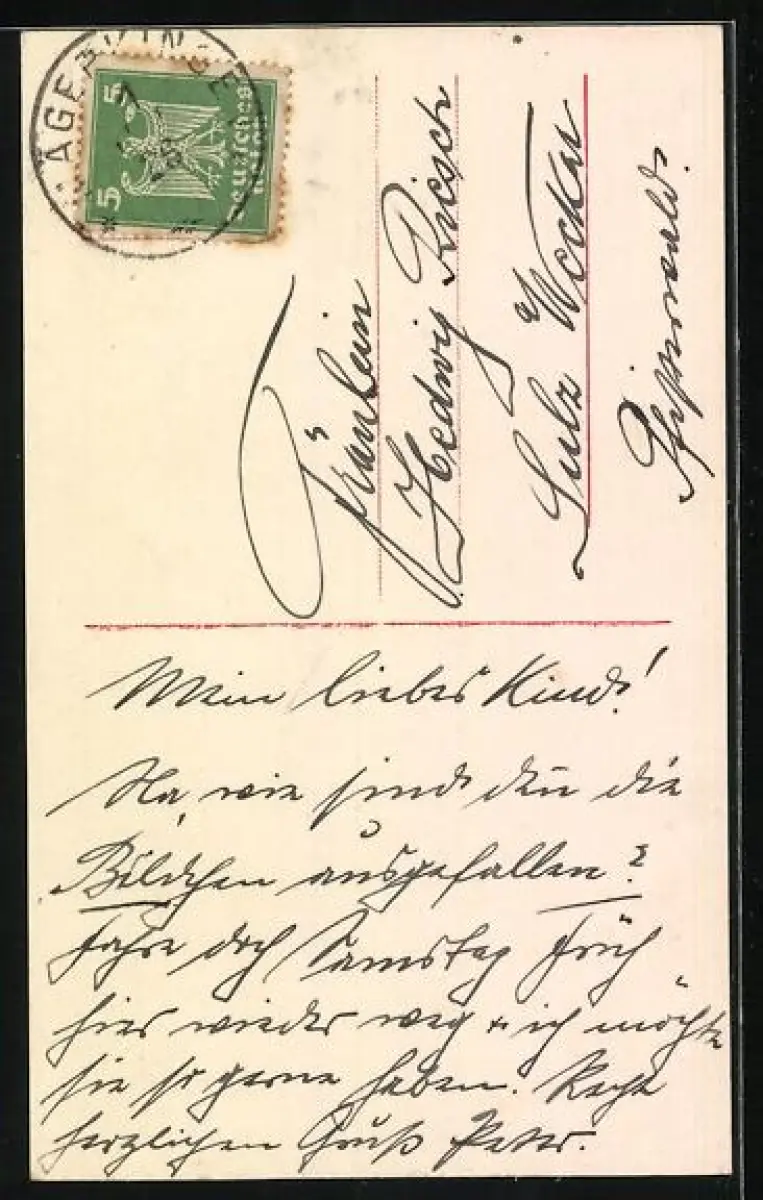 5
5
Deutsches
Reich
Fräulein
Hedwig Riesch
Sulz
Mein liebes Kind!
Na, wie sind den die
Bildchen ausgefallen?
Fahre doch Samstag früh
hier wieder weg + ich möchte
sie so gerne haben. Recht
herzlichen Gruß Peter.